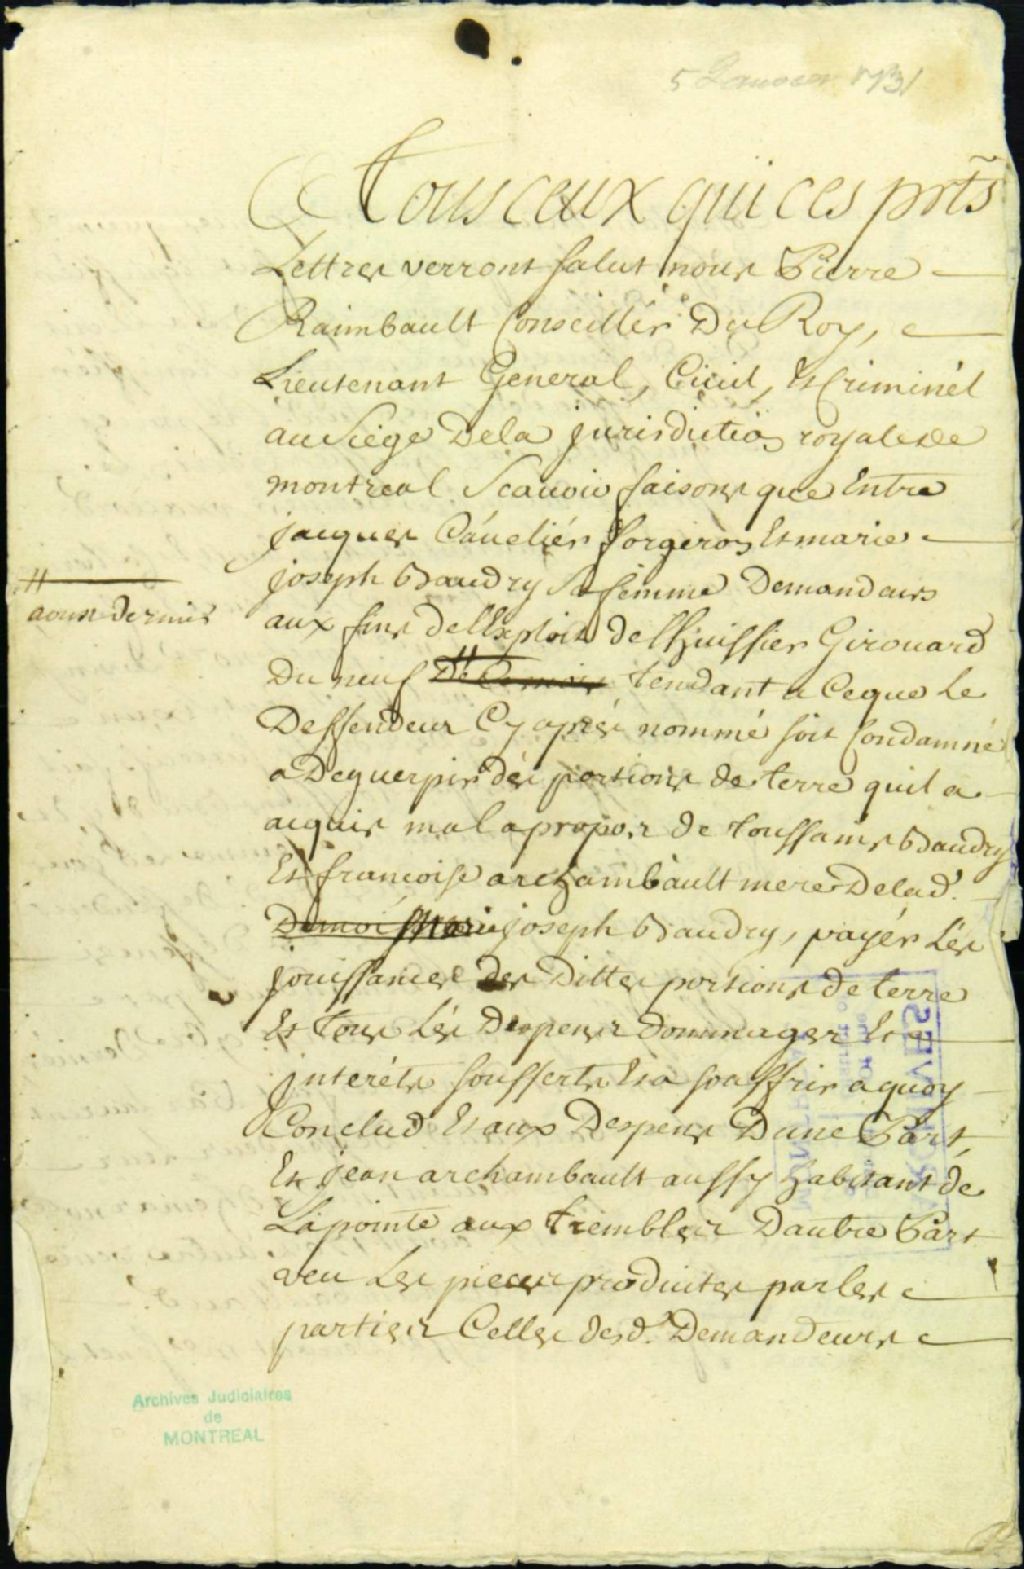 5 Janvier 1731
A Tous ceux qui ces pnts
Lettres verront salut nous Pierre
Raimbault Conseiller Du Roy,
Lieutenant General, Civil, Et Criminel
au Siege Dela jurisdiction royalle de
montreal Scavoir faisons que Entre
jacques Cavelier forgeron Et marie
joseph Baudry Sa femme Demandeurs
aux fins de l'Exploit de l'huissier Girouard
Du neuf tendant a Ceque Le
aoust dernier
Deffendeur Cy aprés nommé soit Condamné
a Deguerpir dés portions de terre quil a
acquis mal apropos de toussains Baudry
Et francoise archambault mere Delad.
joseph Baudry, payér Lés
jouissances des Dittes portions de terre
Et tous Lés Depens Dommages Et
jnteréts soufferts Et a souffrir a quoy
Conclud Et aux Depens Dune Part
Et jean archambault aussy habitant de
Lapointe aux trembles Dautre Part
veu Les pieces produites par les
parties Celles desd. Demandeurs
Archives Judiciaires
de
MONTREAL
ARCHIVES